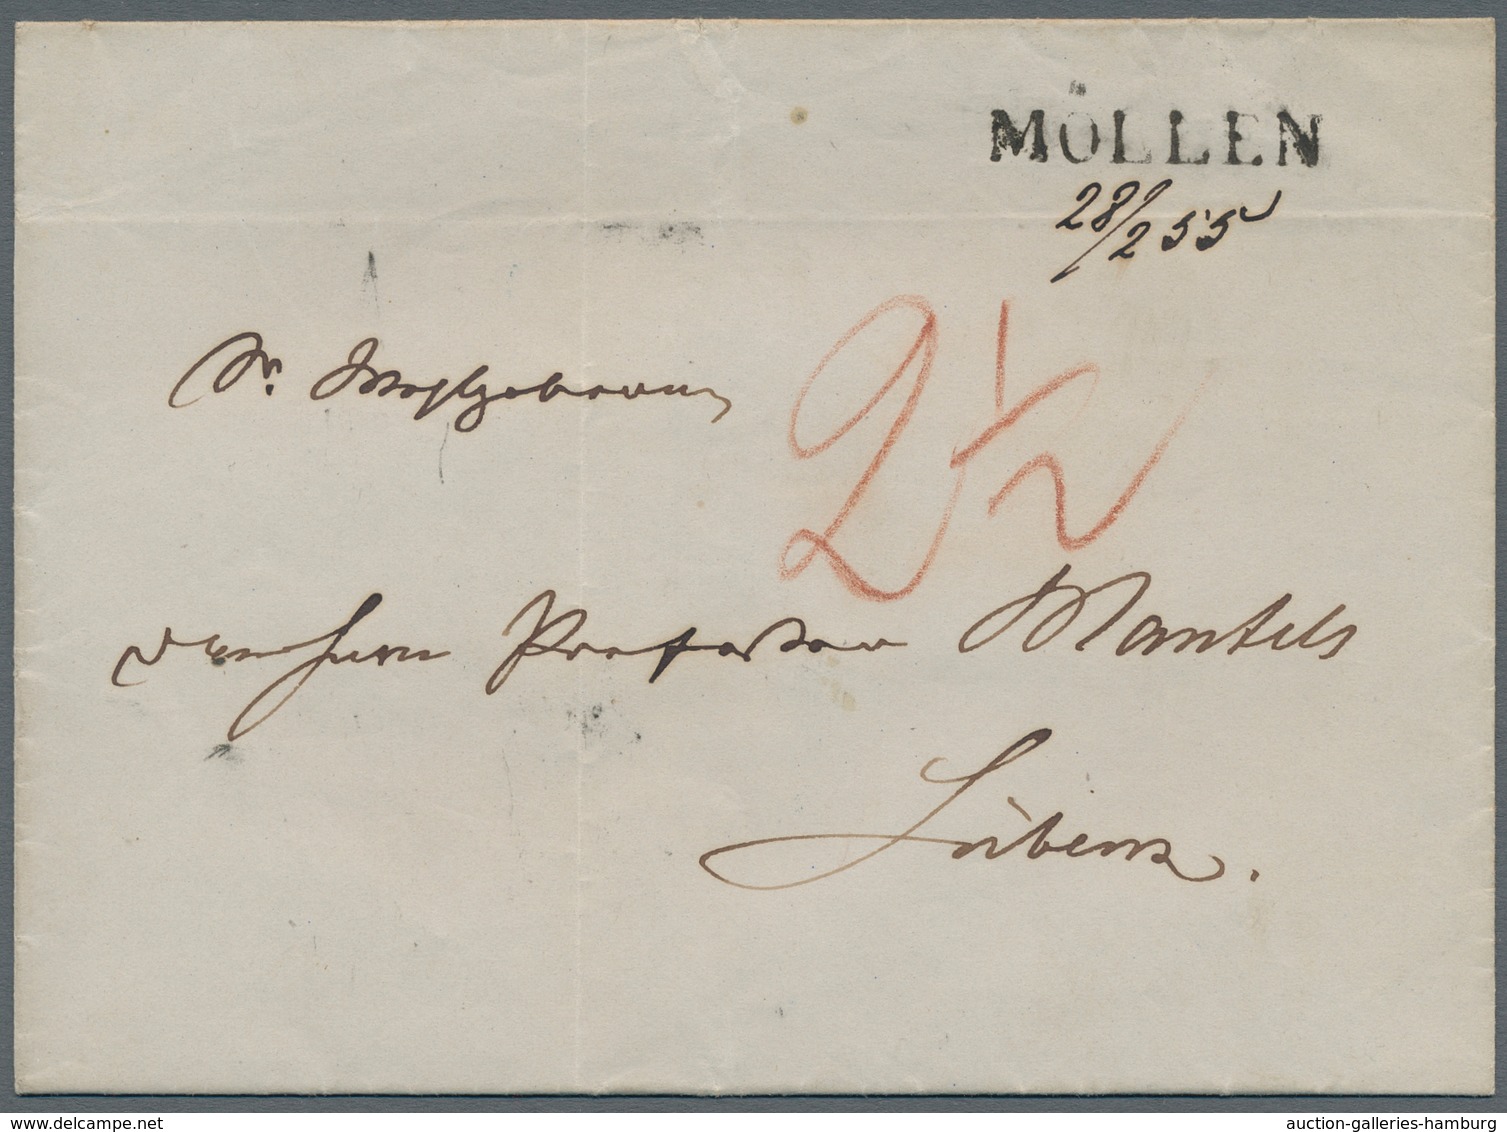 MÖLLEN
28/2 55
2 1/2
Sr. Wohlgeboren
dem Herrn Professor Mantels
Lübeck.
delcampe.net
auction-galleries-hamburg